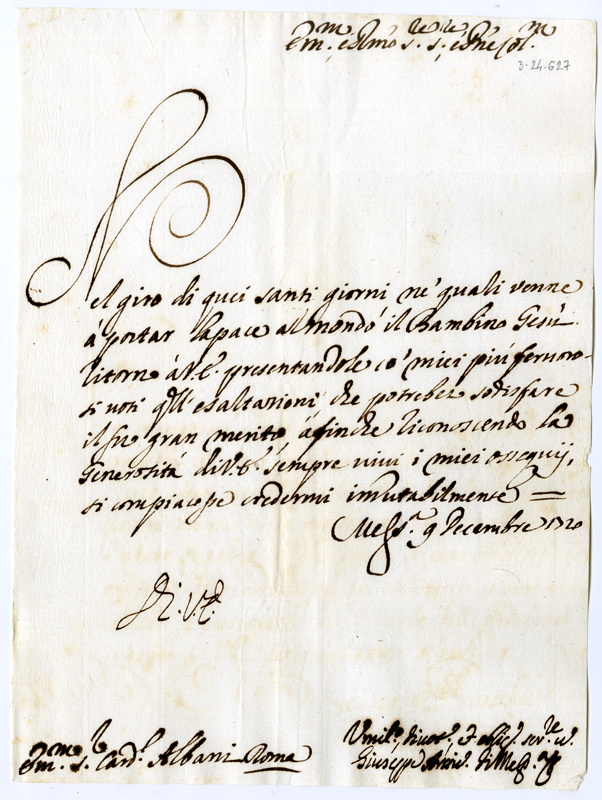 Em.m, e Rmo s.re s.re, e Pne Col.m
3-24-627
Nel giro di quei santi giorni ne' quali venne
à portar la pace al mondo il Bambino Gesù
ritorno à V.E. presentandole co' miei più fervoro-
si voti quell'esaltazioni, che potrebber sodisfare
il suo gran merito, à finche riconoscendo la
Generosità di V.E. sempre vivi i miei ossequij,
si compiacesse credermi immutabilmente =
Mess.a 9 Decembre 1720
Di V.E.
Em.m s.r Card.l Albani Roma
Umil.o, Divot.o, ed obblig. ser.re v.
Giuseppe Arciv. di Mess.a